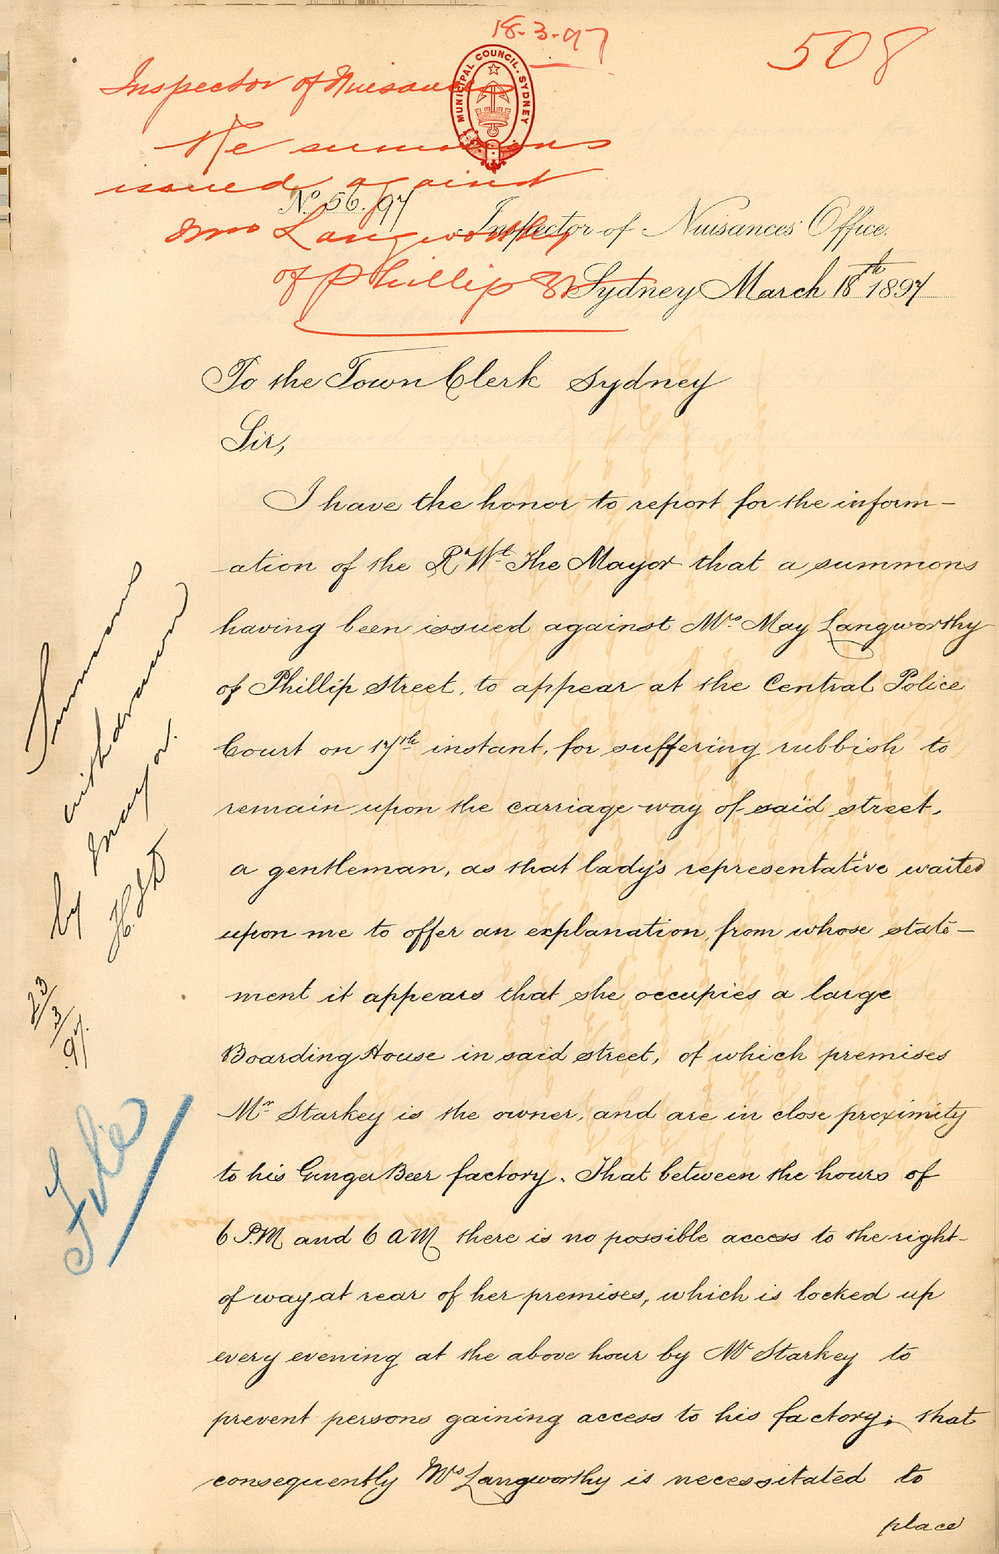 18-3-97
508
MUNICIPAL COUNCIL. SYDNEY
Inspector of Nuisances
Re summons
issued against
Mrs Langworthy
of Phillip St
No. 56. /97
Inspector of Nuisances Office.
Sydney March 18th 1897
To the Town Clerk Sydney
Sir,
I have the honor to report for the inform-
ation of the Rt Wt The Mayor that a summons
having been issued against Mrs May Langworthy
of Phillip Street, to appear at the Central Police
Court on 17th instant, for suffering rubbish to
remain upon the carriage way of said street,
a gentleman, as that lady's representative waited
upon me to offer an explanation, from whose state-
ment it appears that she occupies a large
Boarding House in said street, of which premises
Mr Starkey is the owner, and are in close proximity
to his Ginger Beer factory. That between the hours of
6 PM and 6 AM there is no possible access to the right-
of way at rear of her premises, which is locked up
every evening at the above hour by Mr Starkey to
prevent persons gaining access to his factory; that
consequently Mrs Langworthy is necessitated to
place
Summons
withdrawn
by Mayor.
23/3/97.
File